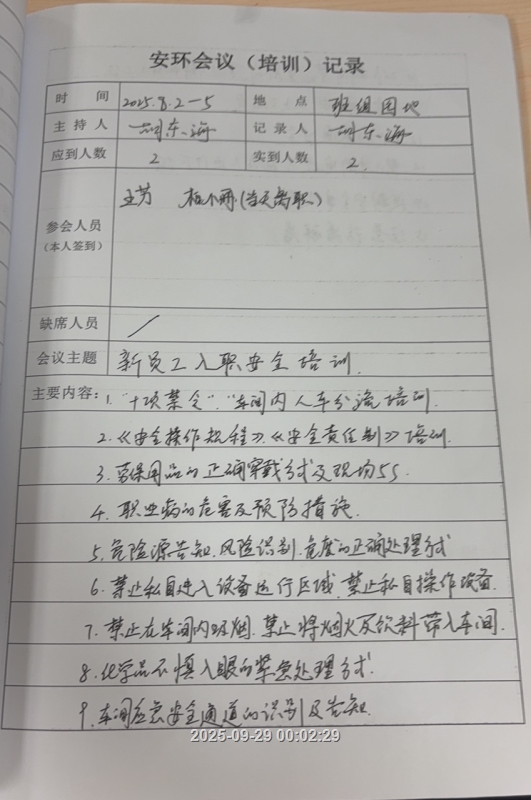 安环会议（培训）记录
时 间 2025.8.2-5 地 点 班组园地
主持人 胡东海 记录人 胡东海
应到人数 2 实到人数 2.
王芳 (当天离职)
参会人员
(本人签到)
缺席人员 /
会议主题 新员工入职安全培训.
主要内容: 1. "十项禁令". 车间内人车分流培训.
2.《安全操作规程》.《安全责任制》培训.
3. 劳保用品的正确穿戴方式及现场5S.
4. 职业病的危害及预防措施.
5. 危险源告知.风险识别.危废的正确处理方式
6. 禁止私自进入设备运行区域.禁止私自操作设备.
7. 禁止在车间内吸烟.禁止将烟火及饮料带入车间.
8. 化学品不慎入眼的紧急处理方式.
9. 车间应急安全通道的识别及告知.
2025-09-29 00:02:29